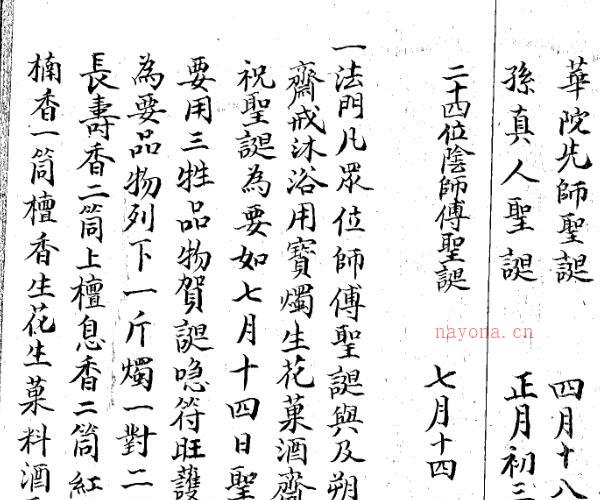 華陀先師聖誕 四月十八
孫真人聖誕 正月初三
二十四位陰師傅聖誕 七月十四
一法門凡眾位師傅聖誕與及朔
齋戒沐浴用寶燭生花菓酒齋
祝聖誕為要如七月十四日聖
要用三牲品物賀誕喼符旺護
為要品物列下一斤燭一對二
長壽香二筒上檀息香二筒紅
楠香一筒檀香生花生菓料酒
nayona.cn